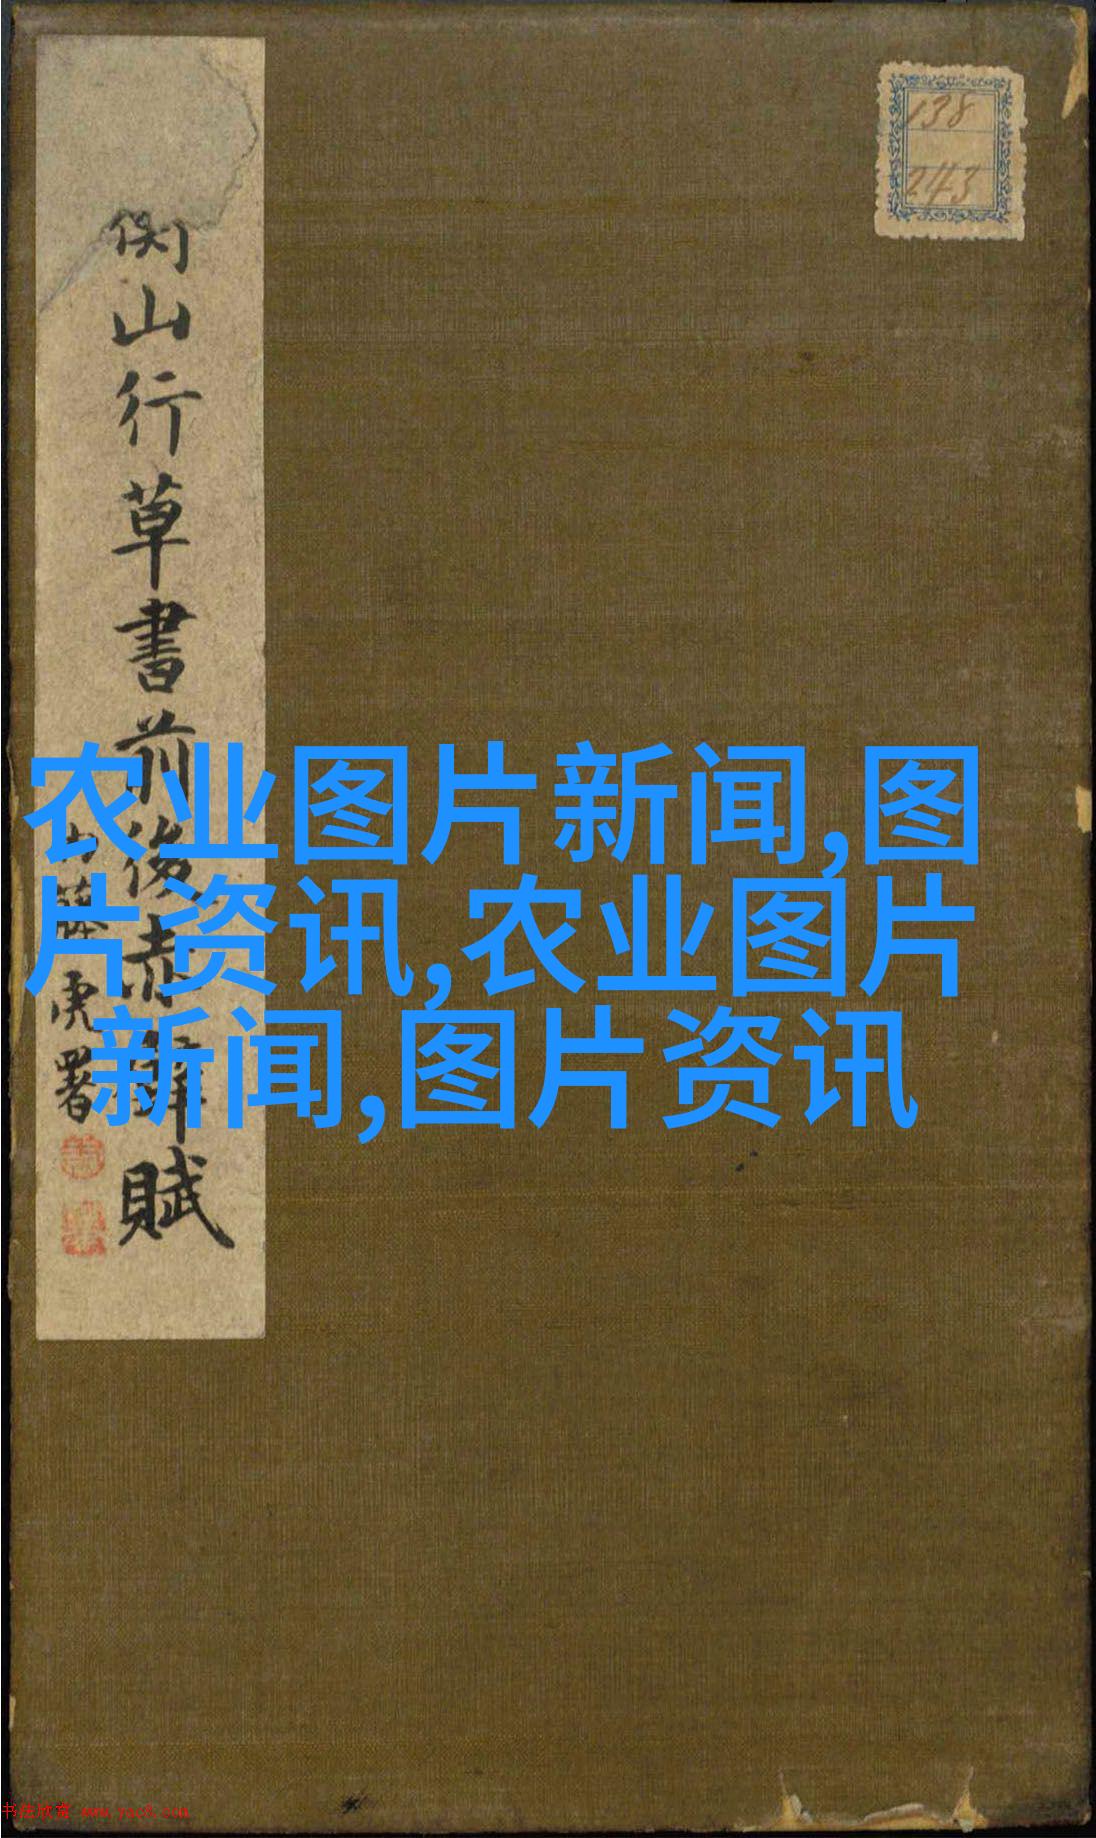 衡山行草書前後赤壁賦
内藤虎署
138
243
农业图片新闻,图
片资讯,农业图片
新闻,图片资讯
书法欣赏 www.yac8.com